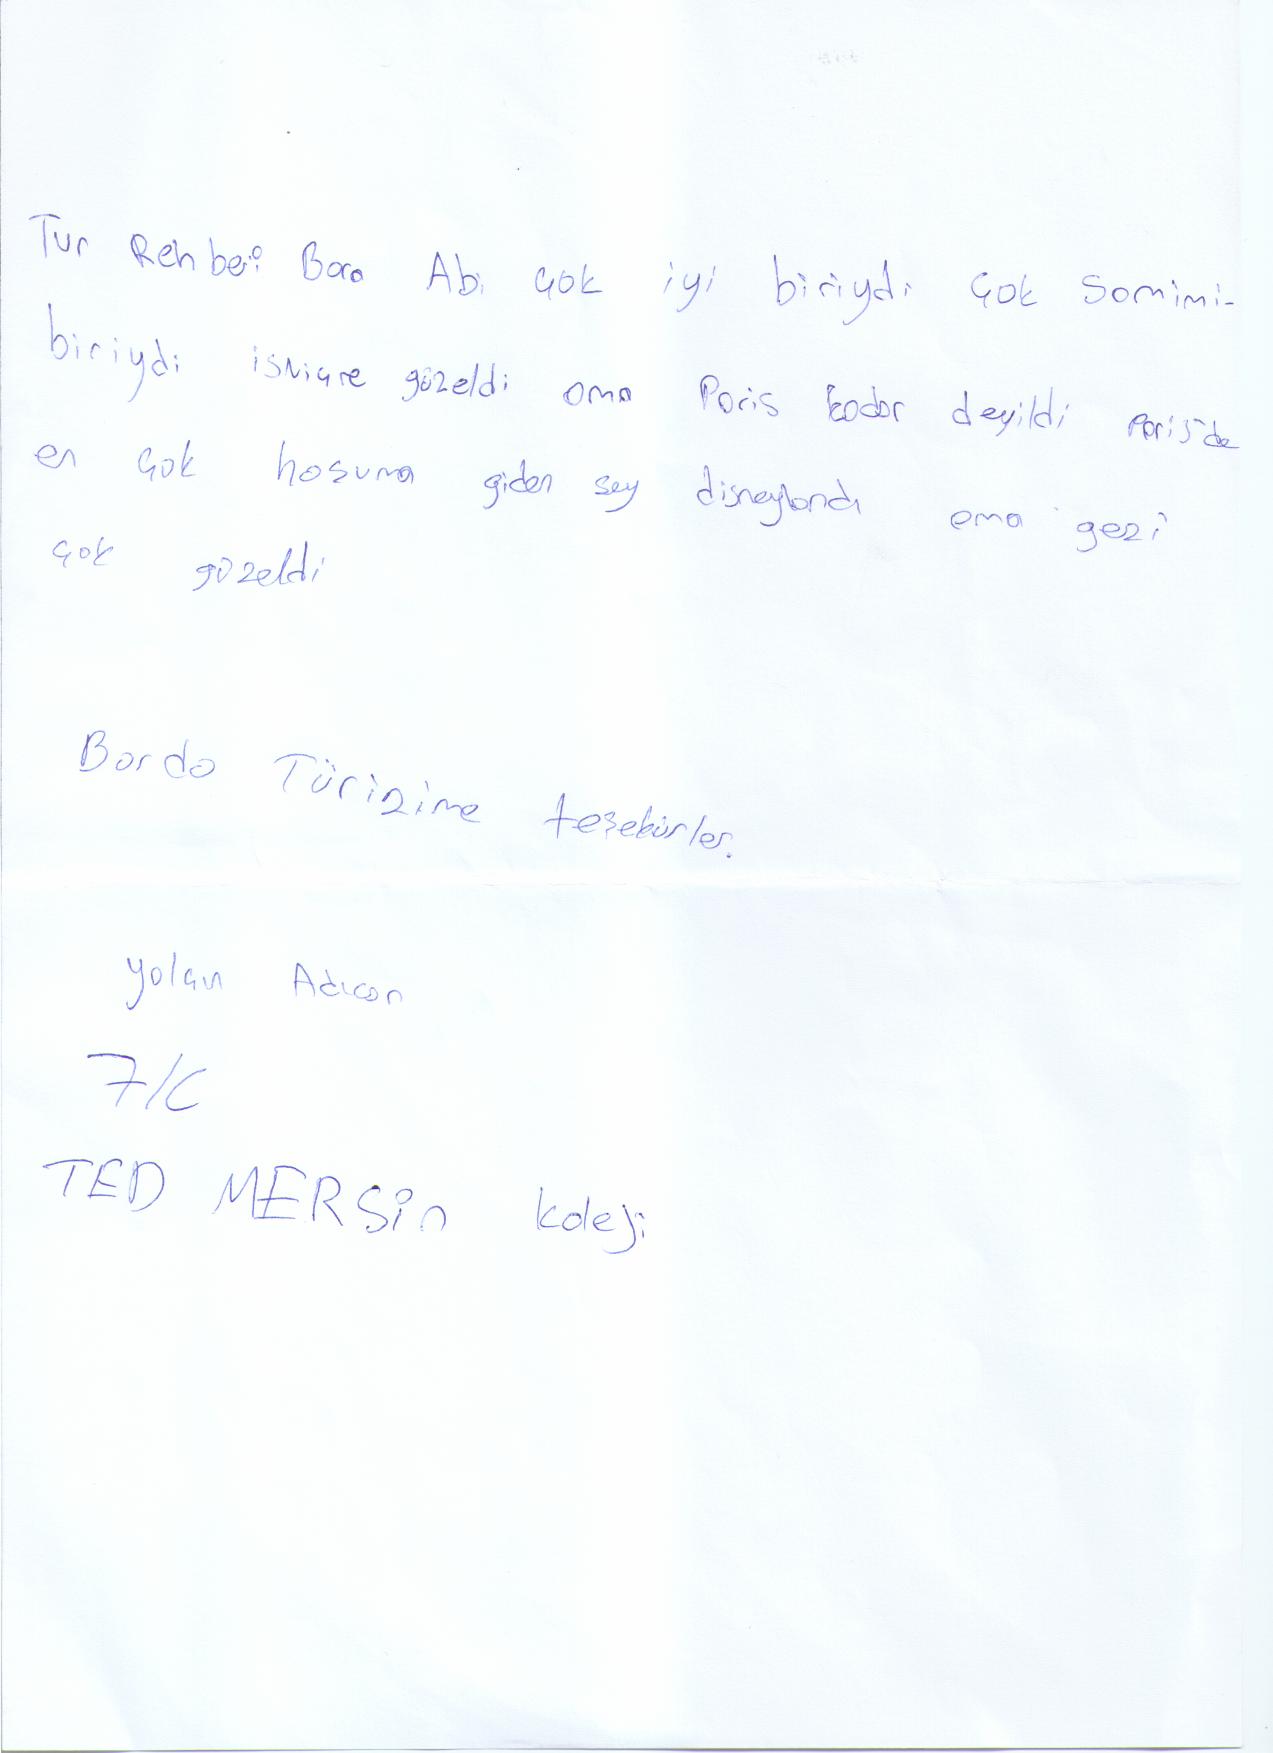 Tur Rehberi Bora Abi çok iyi biriydi çok samimi-
biriydi isviçre güzeldi ama Paris kadar deyildi Paris'de
en çok hosuma giden sey disneylandı ama gezi
çok güzeldi
Bordo Türizime teşekürler.
7/C
TED MERSin koleji